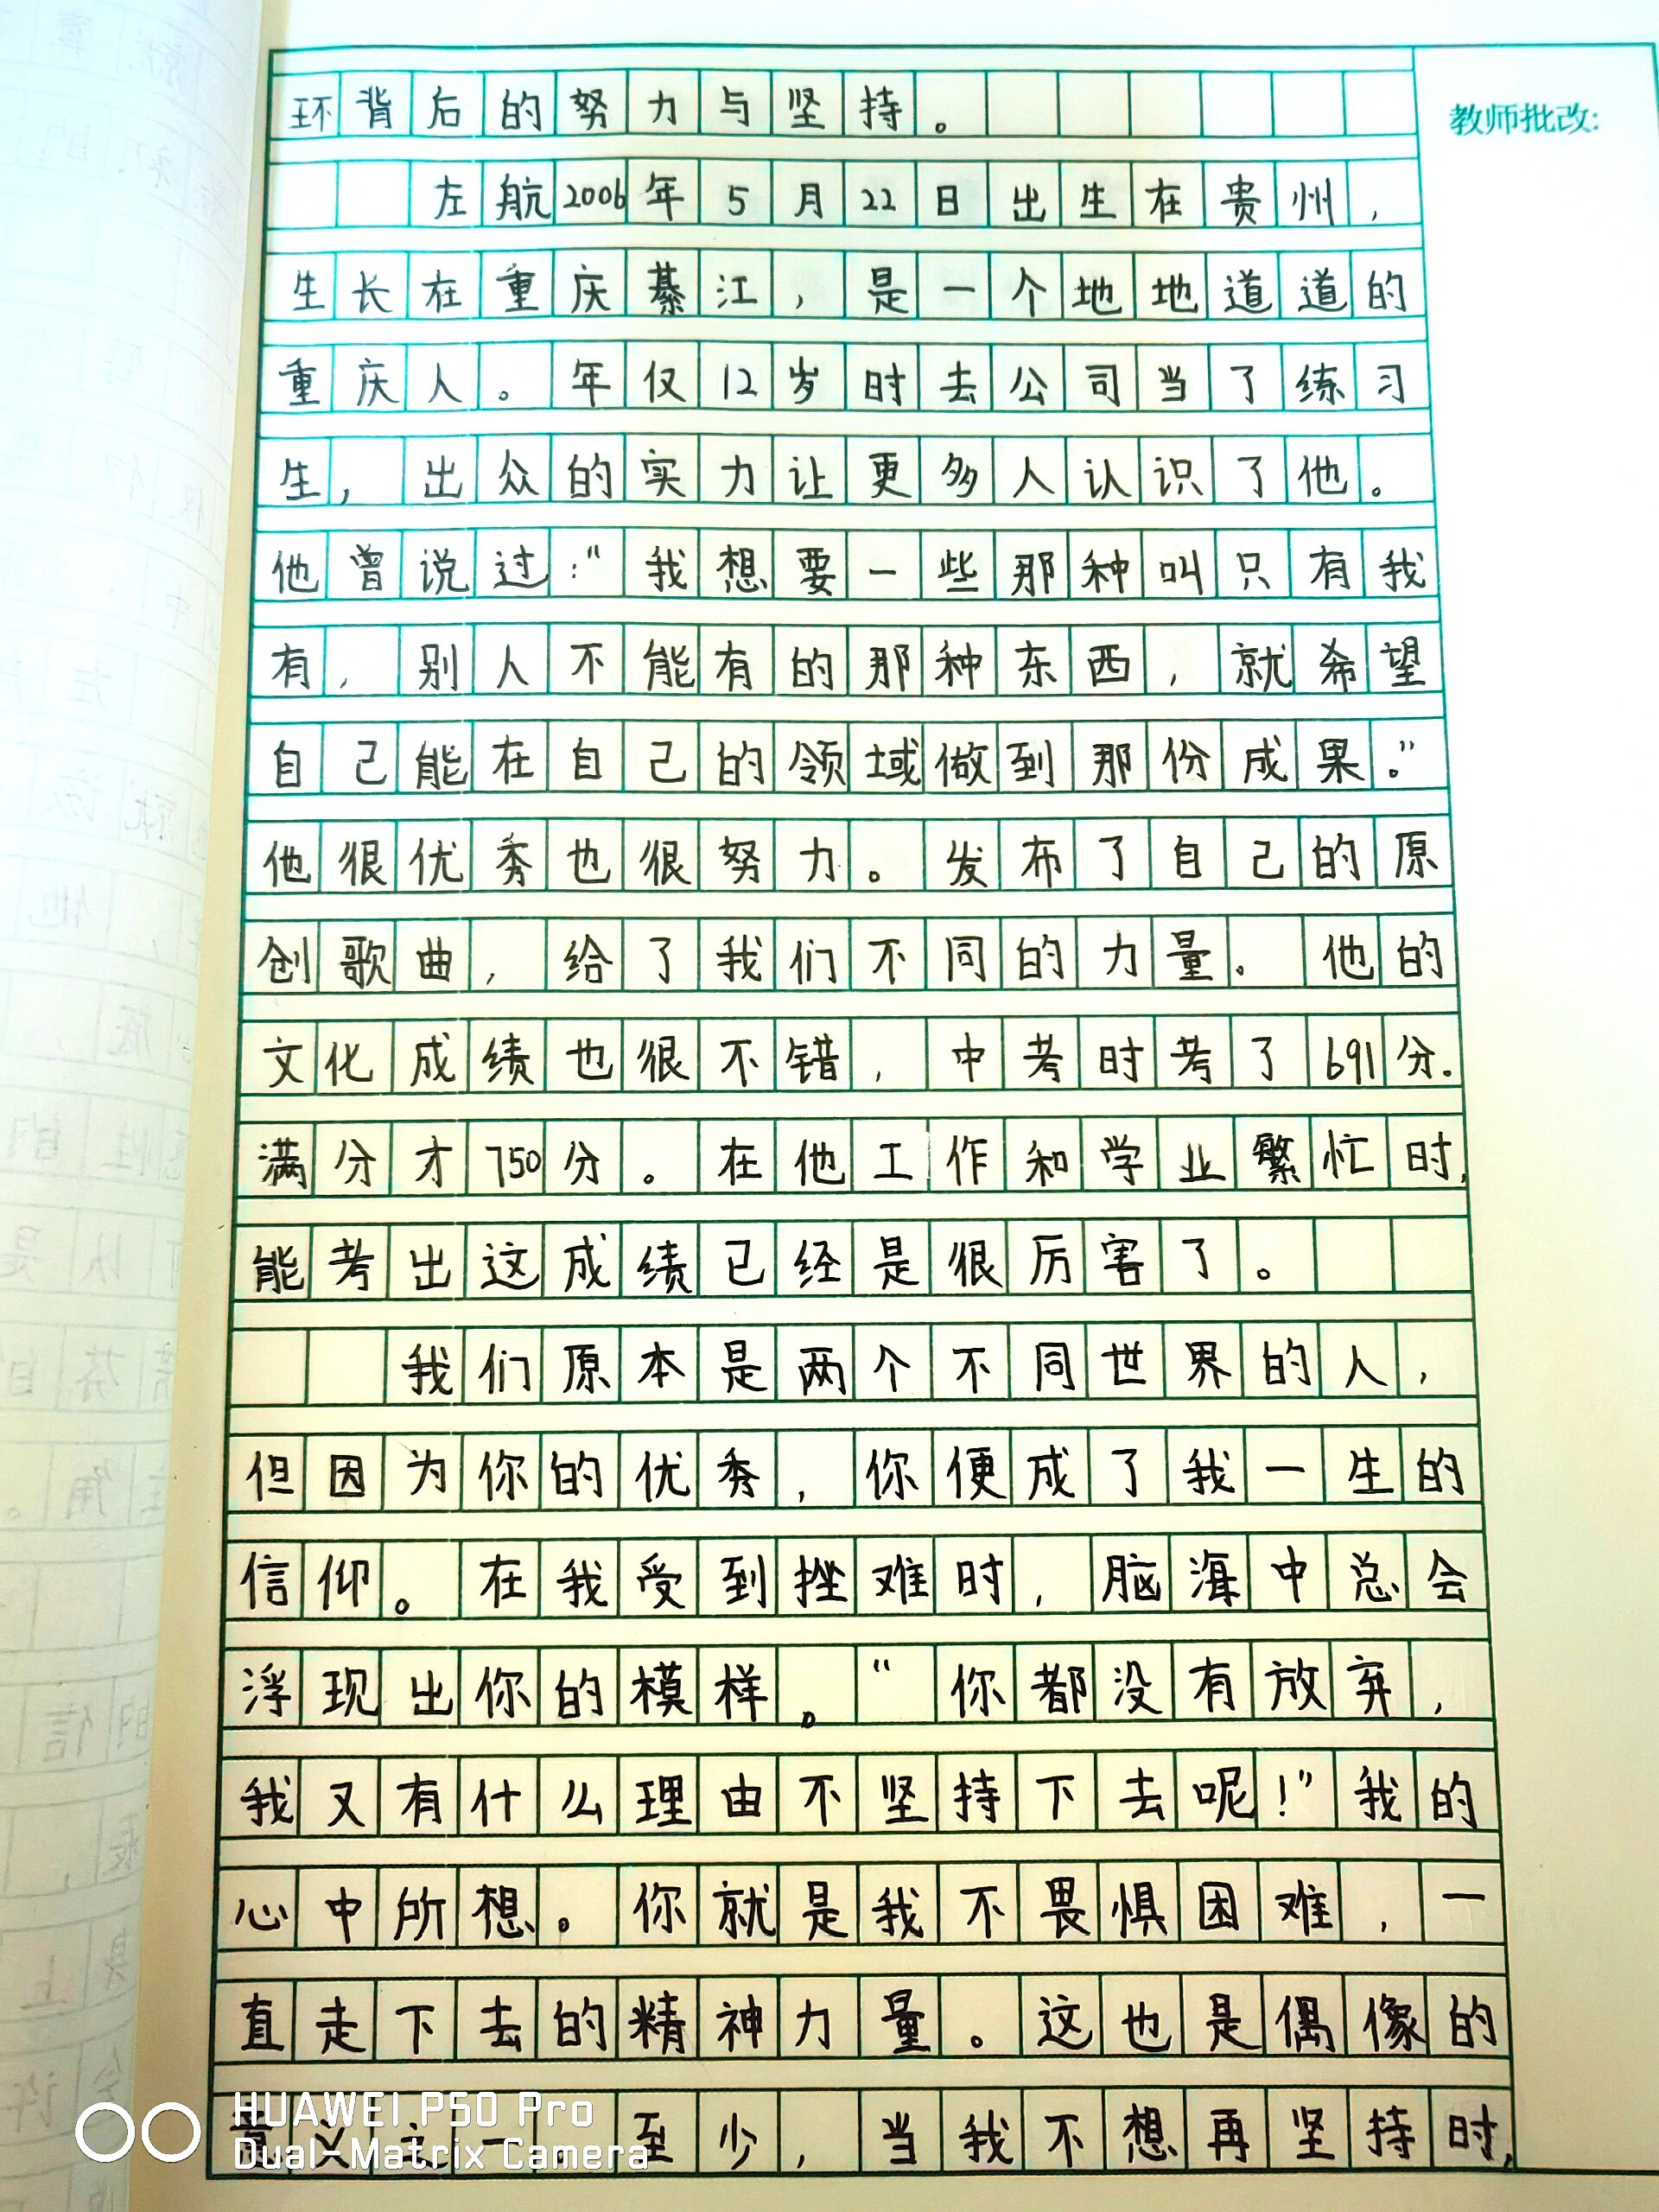 环背后的努力与坚持。
教师批改:
左航2006年5月22日出生在贵州，
生长在重庆綦江，是一个地地道道的
重庆人。年仅12岁时去公司当了练习
生，出众的实力让更多人认识了他。
他曾说过:“我想要一些那种叫只有我
有，别人不能有的那种东西，就希望
自己能在自己的领域做到那份成果。”
他很优秀也很努力。发布了自己的原
创歌曲，给了我们不同的力量。他的
文化成绩也很不错，中考时考了691分.
满分才750分。在他工作和学业繁忙时,
能考出这成绩已经是很厉害了。
我们原本是两个不同世界的人，
但因为你的优秀，你便成了我一生的
信仰。在我受到挫难时，脑海中总会
浮现出你的模样。“你都没有放弃，
我又有什么理由不坚持下去呢!”我的
心中所想。你就是我不畏惧困难，一
直走下去的精神力量。这也是偶像的
意义之一 至少，当我不想再坚持时,
HUAWEI P50 Pro
Dual-Matrix Camera